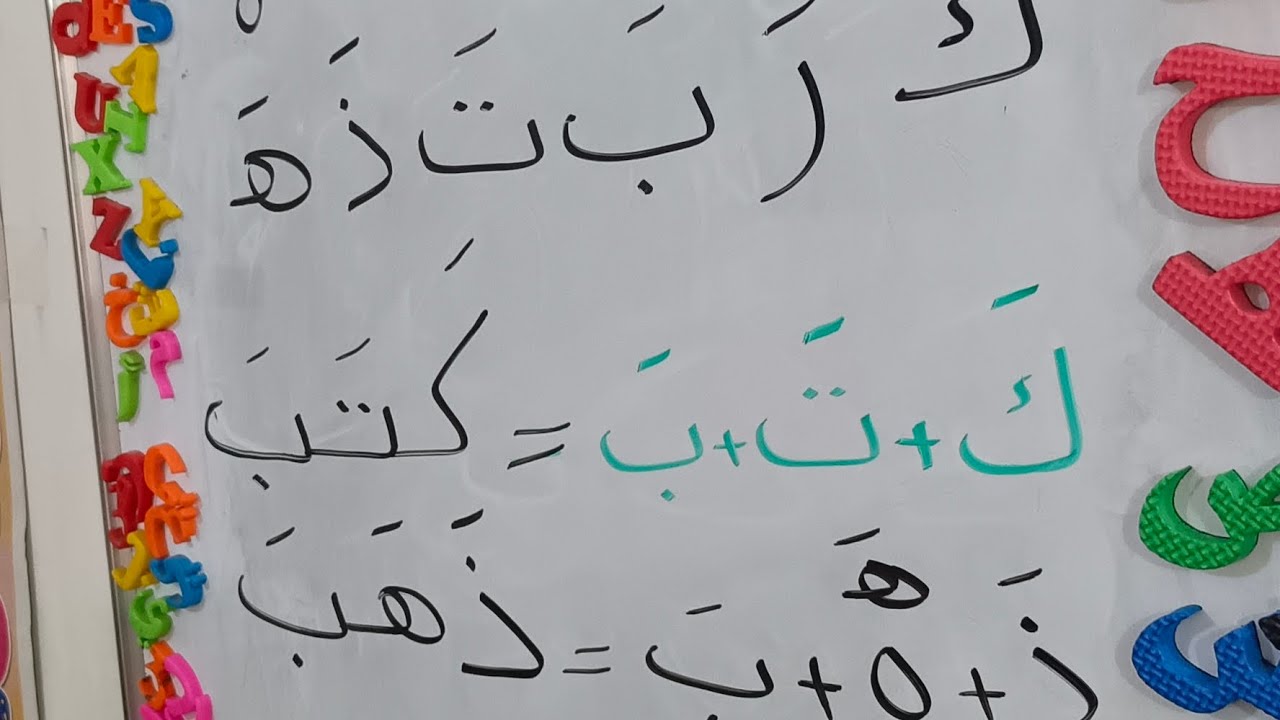 كَ رَ بَ تَ ذَ هَ
كَ + تَ + بَ = كَتَبَ
هَ
ذَ + ه + بَ = ذَهَبَ